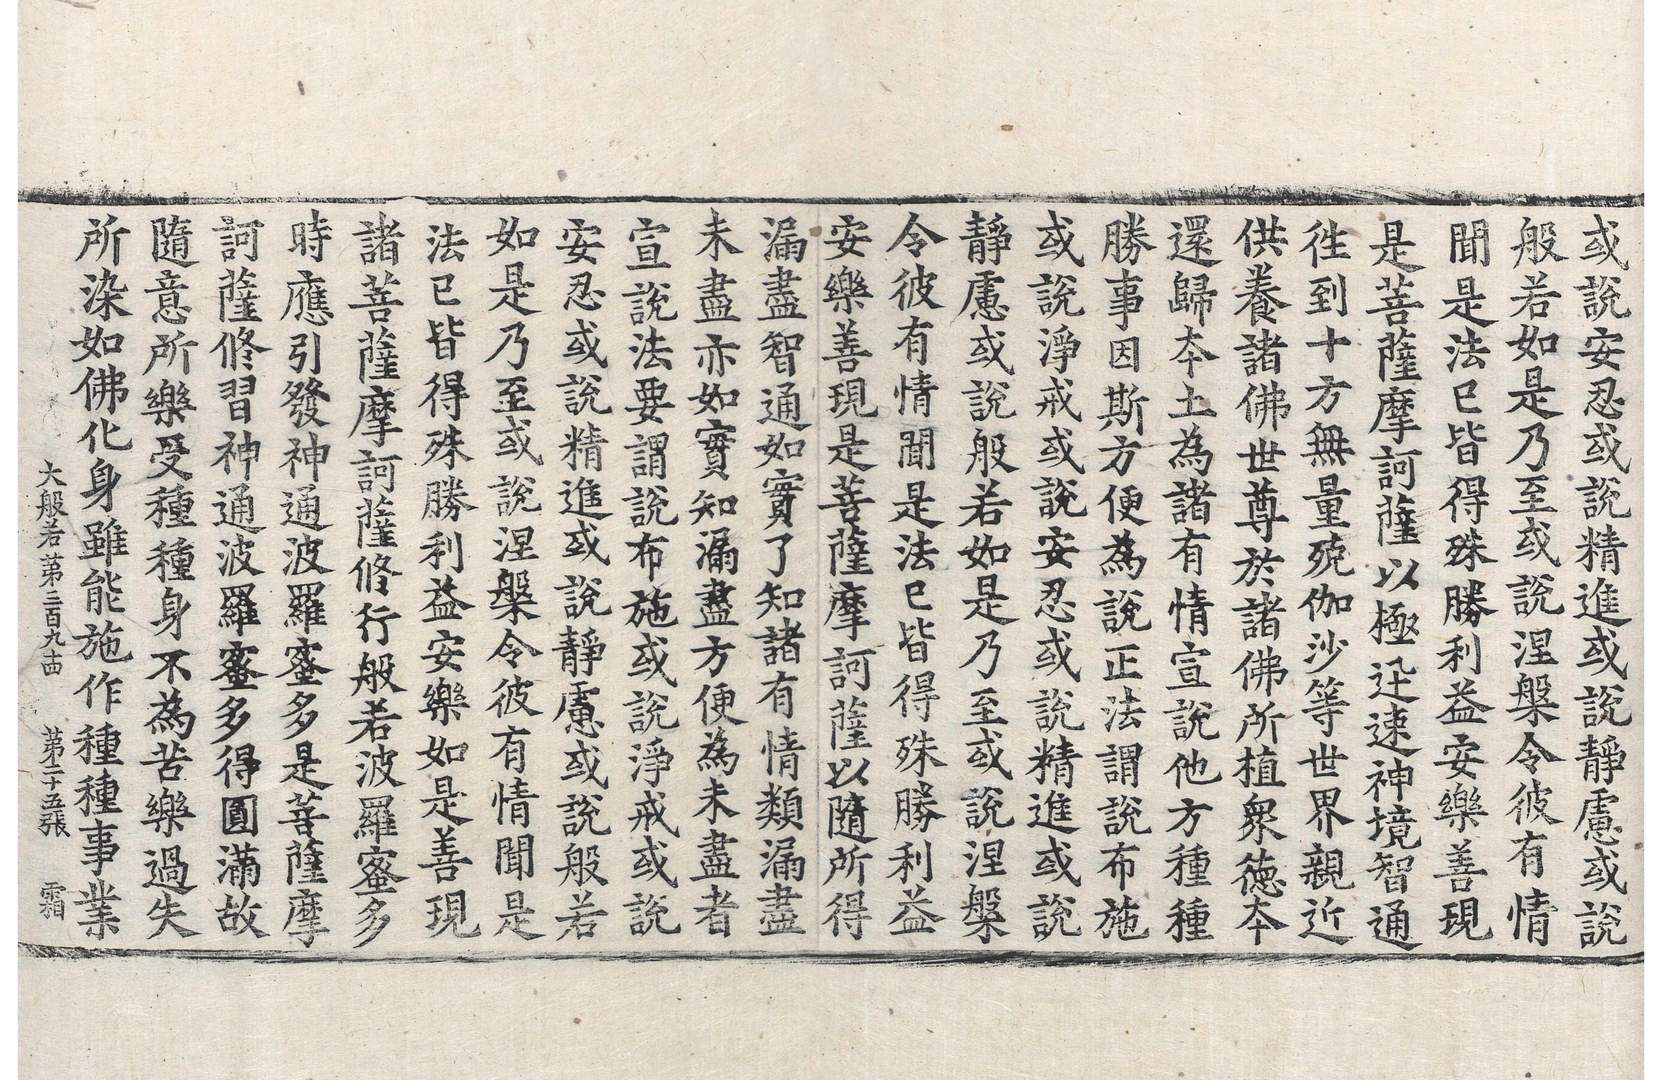 或說安忍或說精進或說靜慮或說
般若如是乃至或說涅槃令彼有情
聞是法已皆得殊勝利益安樂善現
是菩薩摩訶薩以極迅速神境智通
徃到十方無量殑伽沙等世界親近
供養諸佛世尊於諸佛所植衆德本
還歸本土為諸有情宣說他方種種
勝事因斯方便為說正法謂說布施
或說淨戒或說安忍或說精進或說
靜慮或說般若如是乃至或說涅槃
令彼有情聞是法已皆得殊勝利益
安樂善現是菩薩摩訶薩以隨所得
漏盡智通如實了知諸有情類漏盡
未盡亦如實知漏盡方便為未盡者
宣說法要謂說布施或說淨戒或說
安忍或說精進或說靜慮或說般若
如是乃至或說涅槃令彼有情聞是
法已皆得殊勝利益安樂如是善現
諸菩薩摩訶薩修行般若波羅蜜多
時應引發神通波羅蜜多是菩薩摩
訶薩修習神通波羅蜜多得圓滿故
隨意所樂受種種身不為苦樂過失
所染如佛化身雖能施作種種事業
大般若第三百九十四 第二十五張 霜